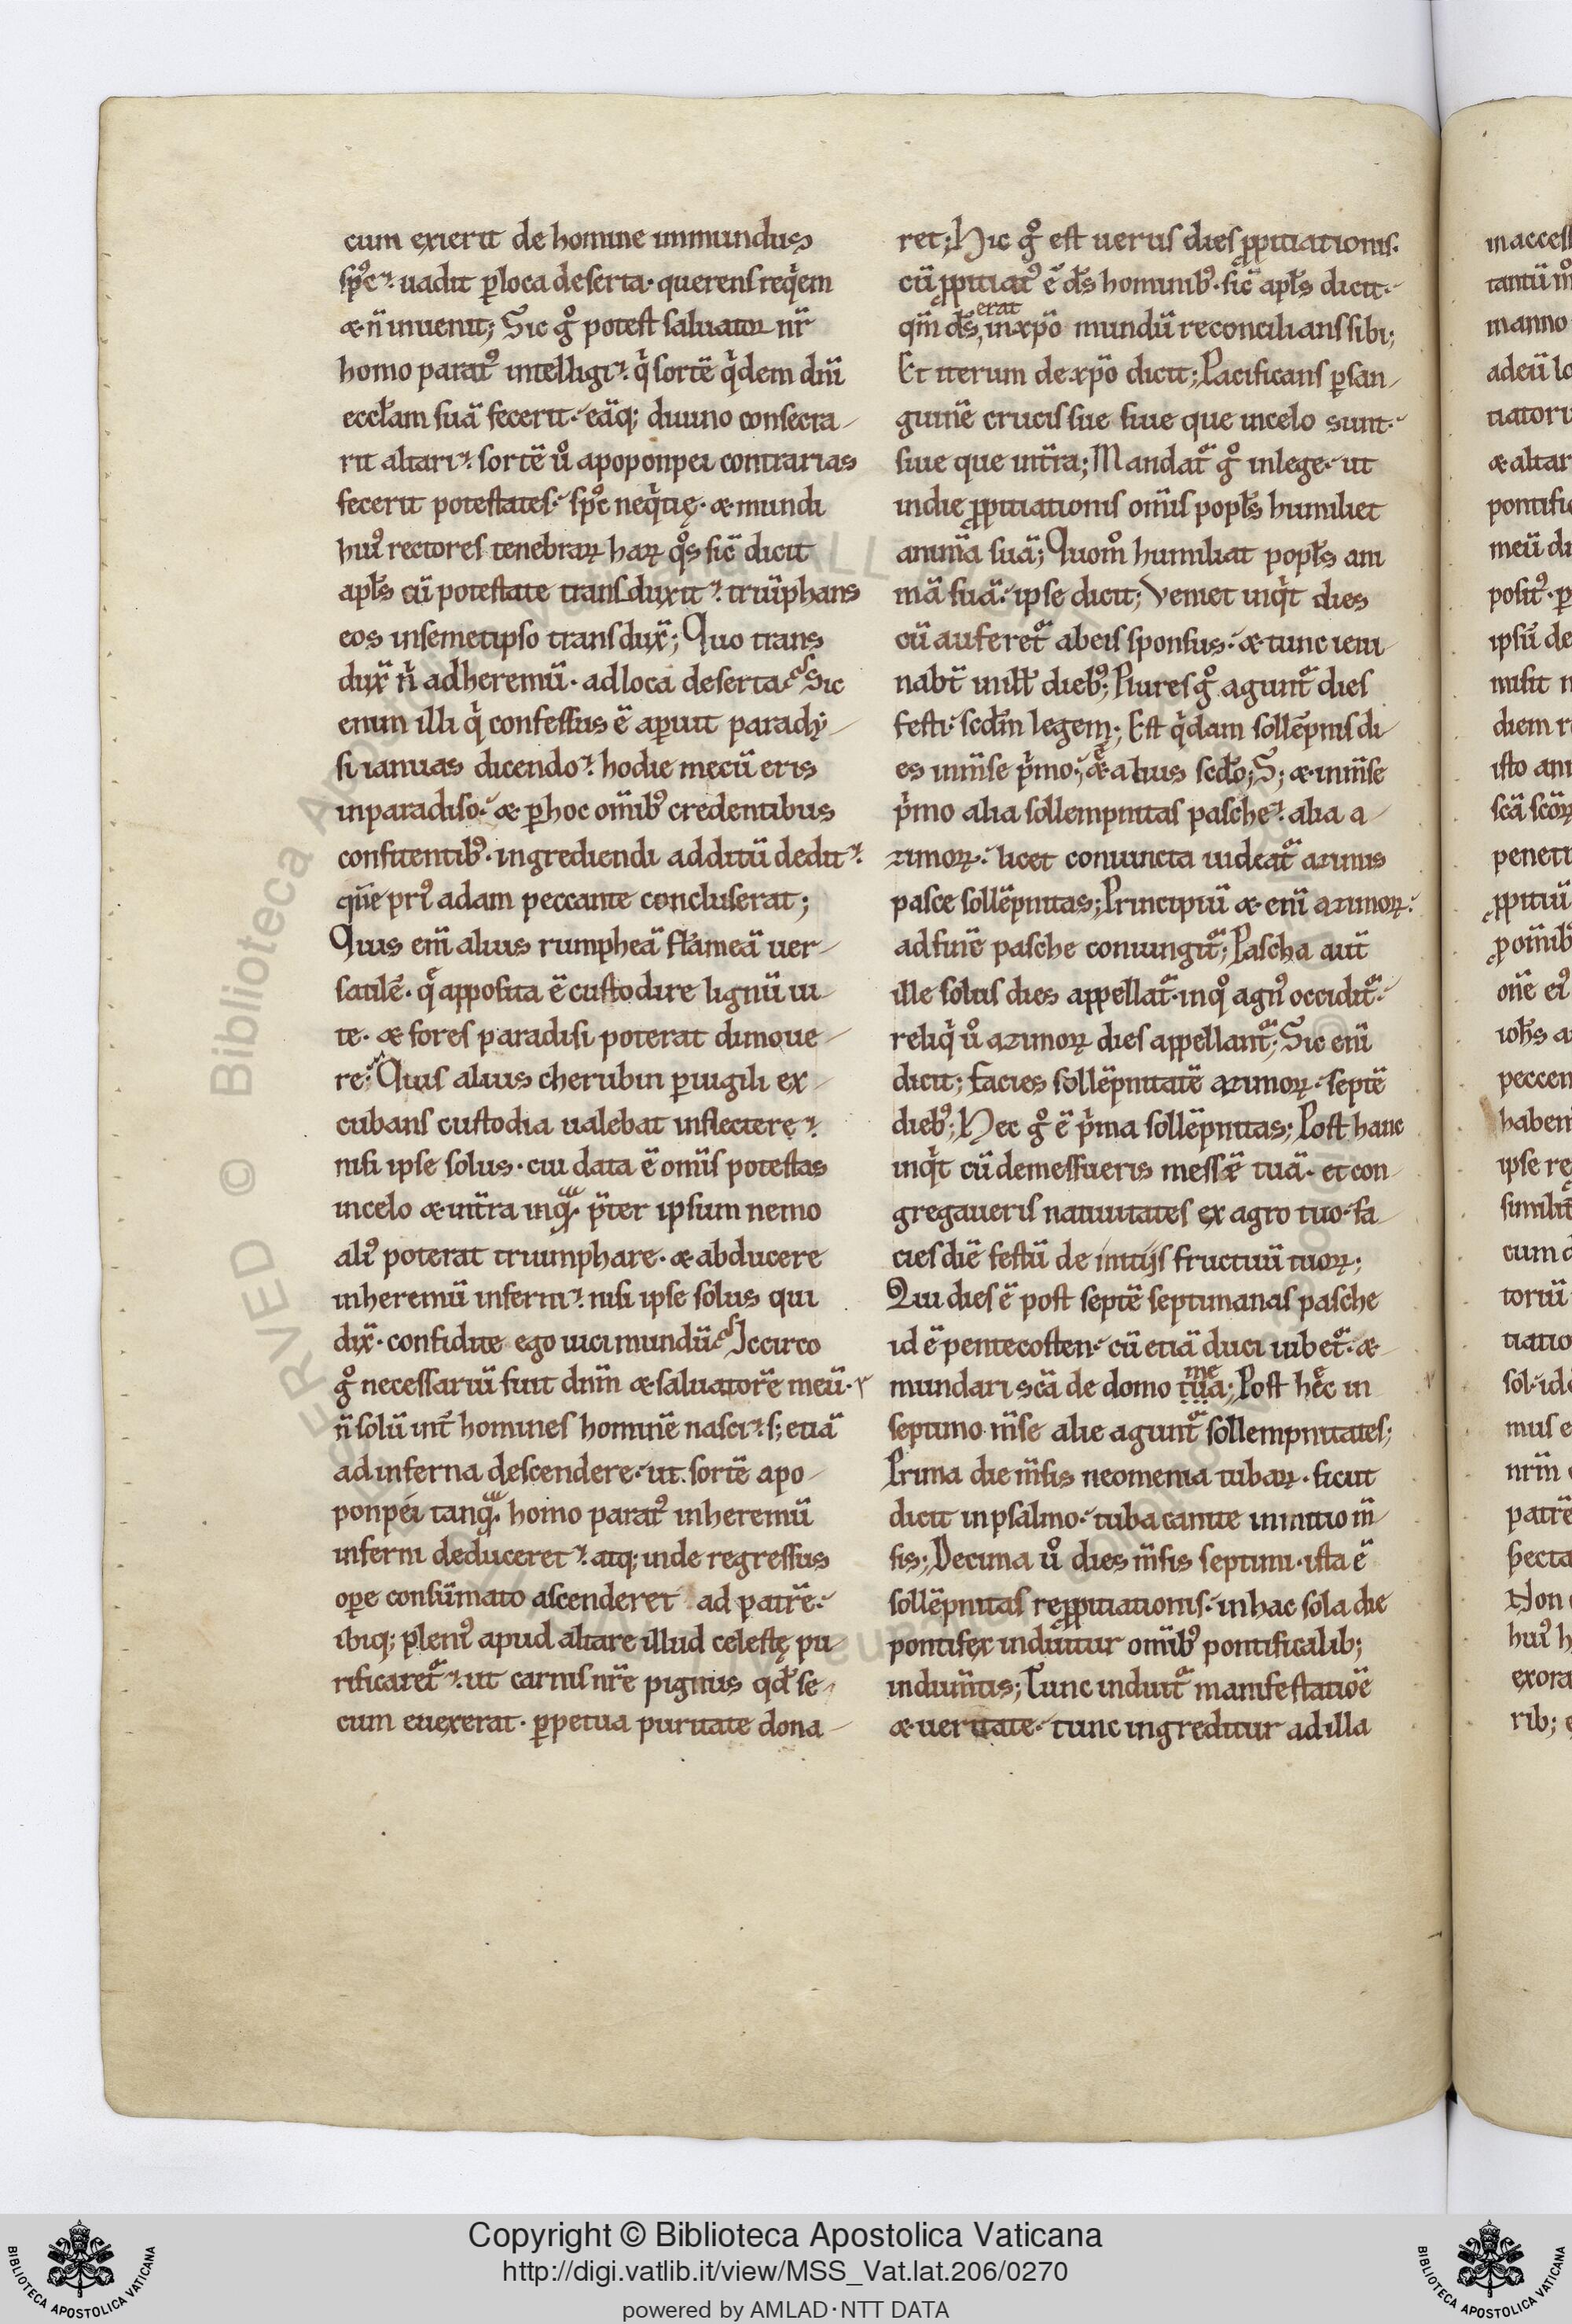 cum exierit de homine inmundus
sp̄c. uadit ꝑ loca deserta. querens reqͥem
& n̄ inuenit; Sic gͦ potest saluator nr̄
homo paratꝰ intelligi. qͥ sortē qͥdem dn̄i
eccłam suā fecerit. eāq; diuino consecra
rit altari. sortē uͦ apoponpei contrarias
fecerit potestates. sp̄c neqͥtię. & mundi
huiꝰ rectores tenebraꝝ haꝝ qͦs sic̄ dicit
apłs cū potestate transduxit. triūphans
eos insemetipso transdux̄; Quo trans
dux̄ nͥ adheremū. adloca deserta. Sic
enim illi qͥ confessus ē aperuit parady
si ianuas dicendo. hodie mecū eris
inparadiso. & ꝑ hoc om̄ibꝰ credentibus
confitentibꝰ. ingrediendi additū dedit.
qūe priꝰ adam peccante concluserat;
Quis eni̅ alius rumpheā flameā uer
satilē. qͤ apposita ē custodire lignū ui
te. & fores paradisi poterat dimoue
re. Quis alius cherubin ꝑuigili ex
cubans custodia ualebat inflectere.
nisi ipse solus. cui data ē om̄is potestas
incelo & int̄ra inqͣ. p̄ter ipsum nemo
aliꝰ poterat triumphare. & abducere
inheremū inferni. nisi ipse solus qui
dix̄. confidite ego uici mundū. Iccirco
gͦ necessariū fuit dn̄m & saluatorē meū.
n̄ solū int̄ homines hominē nasci. s; etiā
ad inferna descendere. ut sortē apo
ponpei tanqͣ homo paratꝰ inheremū
inferni deduceret. atq; inde regressus
oꝑe consūmato ascenderet ad patrē.
ibiq; pleniꝰ apud altare illud celestę pu
rificaret᷑. ut carnis nr̄e pignus qd̄ se
cum euexerat. ꝑpetua puritate dona
ret; Hic gͦ est uerus dies ꝓpitiationis.
cū ꝓpitiatꝰ ē d̄s hominibꝰ. sic̄ apłs dicit.
erat
qm̄ d̄s, inxp̄o mundū reconcilians sibi;
Et iterum de xp̄o dicit; Pacificans ꝑ san
guinē crucis sue siue que incelo sunt.
siue que int̄ra; Mandat᷑ gͦ inlege. ut
indie ꝓpitiationis om̄is popłs humiliet
animā suā; Quomͦ humiliat popłs ani
mā suā. ipse dicit; Veniet inqͥt dies
cū auferet᷑ abeis sponsus. & tunc ieiu
nabt̄ inilł diebꝰ; Plures gͦ agunt᷑ dies
festi. scdm̄ legem; Est qͥdam sollēpnis di
es inm̄se pͥmo. & alius scdo; S; & inm̄se
pͥmo alia sollempnitas pasche. alia a
zimoꝝ. licet coniuncta uideat᷑ azimis
pasce sollēpnitas; Principiū & enī azimoꝝ.
adfinē pasche coniungit᷑; Pascha aut̄
ille solus dies appellat᷑. inqͦ agnꝰ occidit᷑.
reliqͥ uͦ azimoꝝ dies appellant᷑; Sic enī
dicit; Facies sollēpnitatē azimoꝝ. septē
diebꝰ; Hec gͦ ē pͥma sollēpnitas; Post hanc
inqͥt cū demessueris messē tuā. et con
gregaueris natiuitates ex agro tuo. fa
cies diē festū de initijs fructuū tuoꝝ;
Qui dies ē post septē septimanas pasche
id ē pentecosten. cū etiā duci iubet᷑. &
me
mundari scā de domo tua; Post hec in
septimo m̄se alie agunt᷑ sollempnitates;
Prima die m̄sis neomenia tubaꝝ. sicut
dicit inpsalmo. tuba canite ininitio m̄
sis; Decima uͦ dies m̄sis septimi. ista ē
sollēpnitas reꝓpitiationis. inhac sola die
pontifex induitur om̄ibꝰ pontificalib;
indum̄tis; Tunc induit᷑ manifestatiōē
& ueritate. tunc ingreditur adilla
Copyright © Biblioteca Apostolica Vaticana
http://digi.vatlib.it/view/MSS_Vat.lat.206/0270
powered by AMLAD·NTT DATA